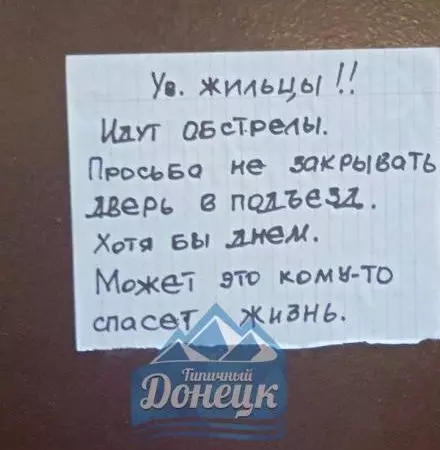 Ув. жильцы!!
Идут обстрелы.
Просьба не закрывать
дверь в подъезд.
Хотя бы днем.
Может это кому-то
спасет жизнь.
Типичный
Донецк